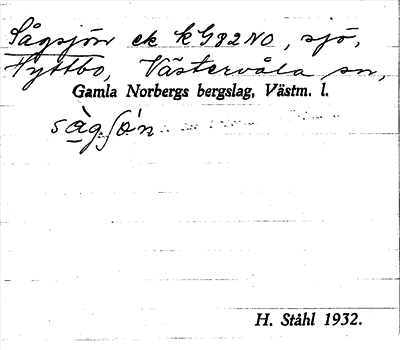 Sågsjön ek kG82NO, sjö,
Hyttbo, Västervåla sn,
Gamla Norbergs bergslag, Västm. l.
sà̠gʃö́n
H. Ståhl 1932.